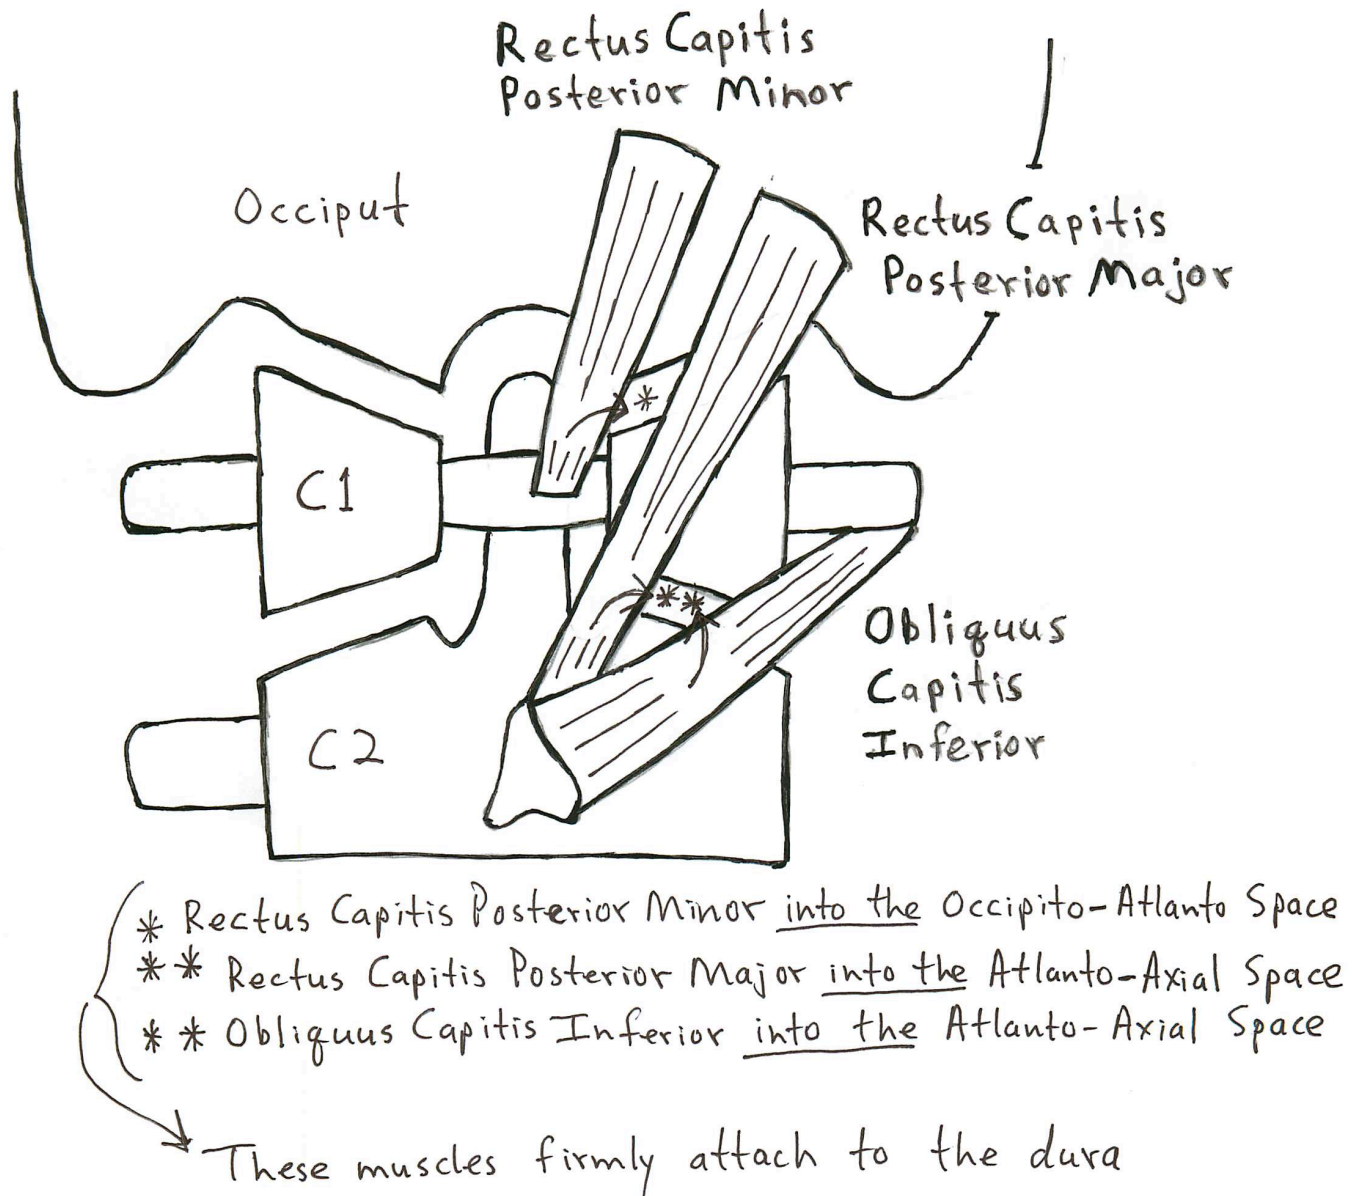 Rectus Capitis
Posterior Minor
Occiput
Rectus Capitis
Posterior Major
*
C1
**
Obliquus
Capitis
Inferior
C2
* Rectus Capitis Posterior Minor into the Occipito-Atlanto Space
** Rectus Capitis Posterior Major into the Atlanto-Axial Space
** Obliquus Capitis Inferior into the Atlanto-Axial Space
These muscles firmly attach to the dura